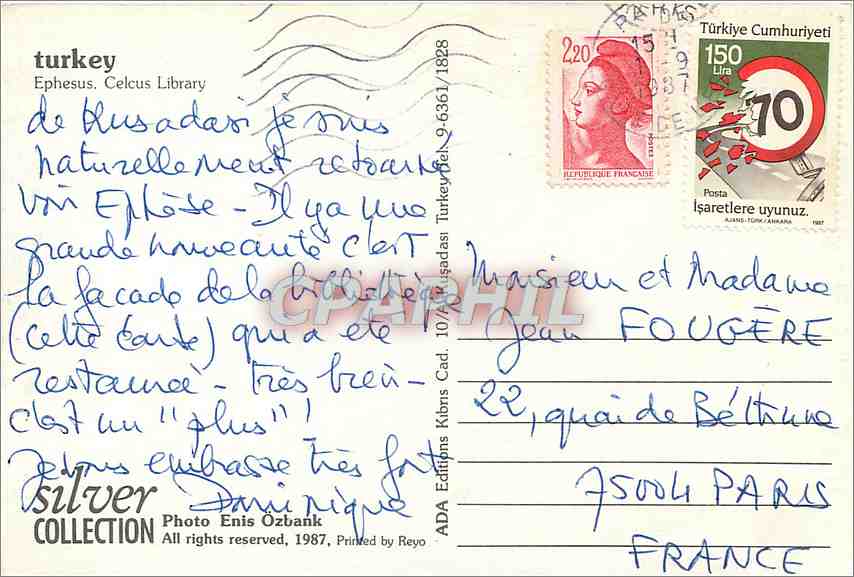 turkey
Ephesus. Celcus Library
de Kusadasi je suis
naturellement retournée
voir Ephèse - Il y a une
grande nouveauté c'est
la façade de la bibliothèque
(cette carte) qui a été
restaurée - très bien -
c'est un "plus"!
Je vous embrasse très fort
Dominique
silver
COLLECTION
Photo Enis Özbank
All rights reserved, 1987, Printed by Reyo
ADA Editions Kıbrıs Cad. 10/A Kuşadası Turkey Tel. 9-6361/1828
2,20
POSTES
REPUBLIQUE FRANÇAISE
PARIS
15 H
Türkiye Cumhuriyeti
150
Lira
70
Posta
İşaretlere uyunuz.
AJANS-TÜRK/ANKARA 1987
CPARHIL
Monsieur et Madame
Jean FOUGÈRE
22, quai de Béthune
75004 PARIS
FRANCE